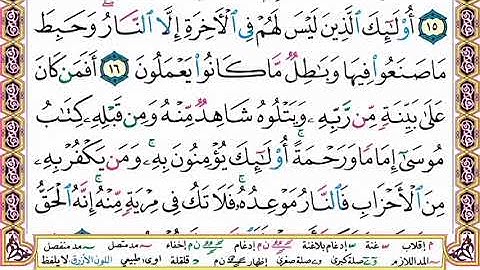 ١٥ أُو۟لَٰٓئِكَ ٱلَّذِينَ لَيْسَ لَهُمْ فِى ٱلْءَاخِرَةِ إِلَّا ٱلنَّارُ ۖ وَحَبِطَ
مَا صَنَعُوا۟ فِيهَا وَبَٰطِلٌ مَّا كَانُوا۟ يَعْمَلُونَ ١٦ أَفَمَن كَانَ
عَلَىٰ بَيِّنَةٍ مِّن رَّبِّهِۦ وَيَتْلُوهُ شَاهِدٌ مِّنْهُ وَمِن قَبْلِهِۦ كِتَٰبُ
مُوسَىٰٓ إِمَامًا وَرَحْمَةً ۚ أُو۟لَٰٓئِكَ يُؤْمِنُونَ بِهِۦ ۚ وَمَن يَكْفُرْ بِهِۦ
مِنَ ٱلْأَحْزَابِ فَٱلنَّارُ مَوْعِدُهُۥ ۚ فَلَا تَكُ فِى مِرْيَةٍ مِّنْهُ ۚ إِنَّهُ ٱلْحَقُّ
م إقلاب غنة إدغام بلاغنة إدغام ن م إخفاء مد متصل مد منفصل
المد اللازم صلة كبرى صلة صغرى إظهار ن م قلقلة مد طبيعي اللون الأزرق لا يلفظ